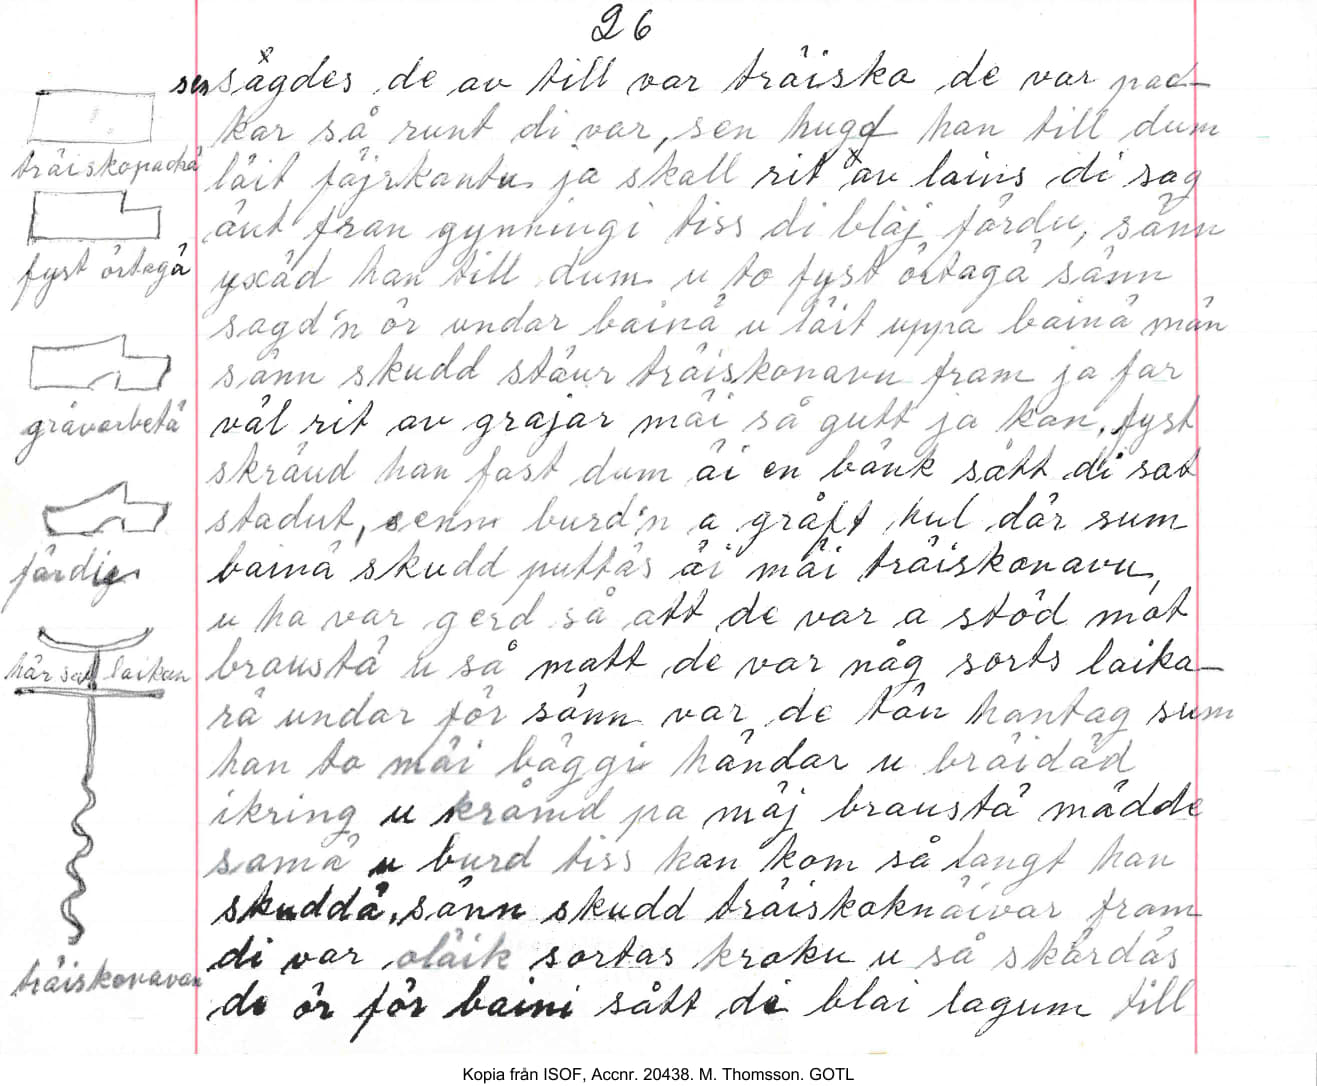 26
sen sågdes de av till var träisko de var pac-
kar så runt di var, sen hugd han till dum
läit fäjrkantu ja skall rit av lains di sag
äut fran gynningi tiss di bläj färdu, sänn
yxäd han till dum u to fyst örtagä sänn
sagd'n ör undar bainä u läit uppa bainä män
sänn skudd stäur träiskonavu fram ja far
väl rit av grajar mäi så gutt ja kan, fyst
skräud han fast dum äi en bänk sått di sat
stadut, senn burd'n a gräft hul där sum
bainä skudd puttäs äi mäi träiskonavu,
u ha var gerd så att de var a stöd mot
braustä u så matt de var någ sorts laika-
rä undar för sänn var de tåu hantag sum
han to mäi bäggi händar u bräidäd
ikring u krämd pa mäj braustä mädde
samä u burd tiss han kom så langt han
skuddä, sänn skudd träiskoknäivar fram
di var oläik sortas kroku u så skärdäs
de ör för baini sått di blai lagum till
träiskopackä
fyst örtagä
grävarbetä
färdig
här sat laikan
träiskonavan
Kopia från ISOF, Accnr. 20438. M. Thomsson. GOTL